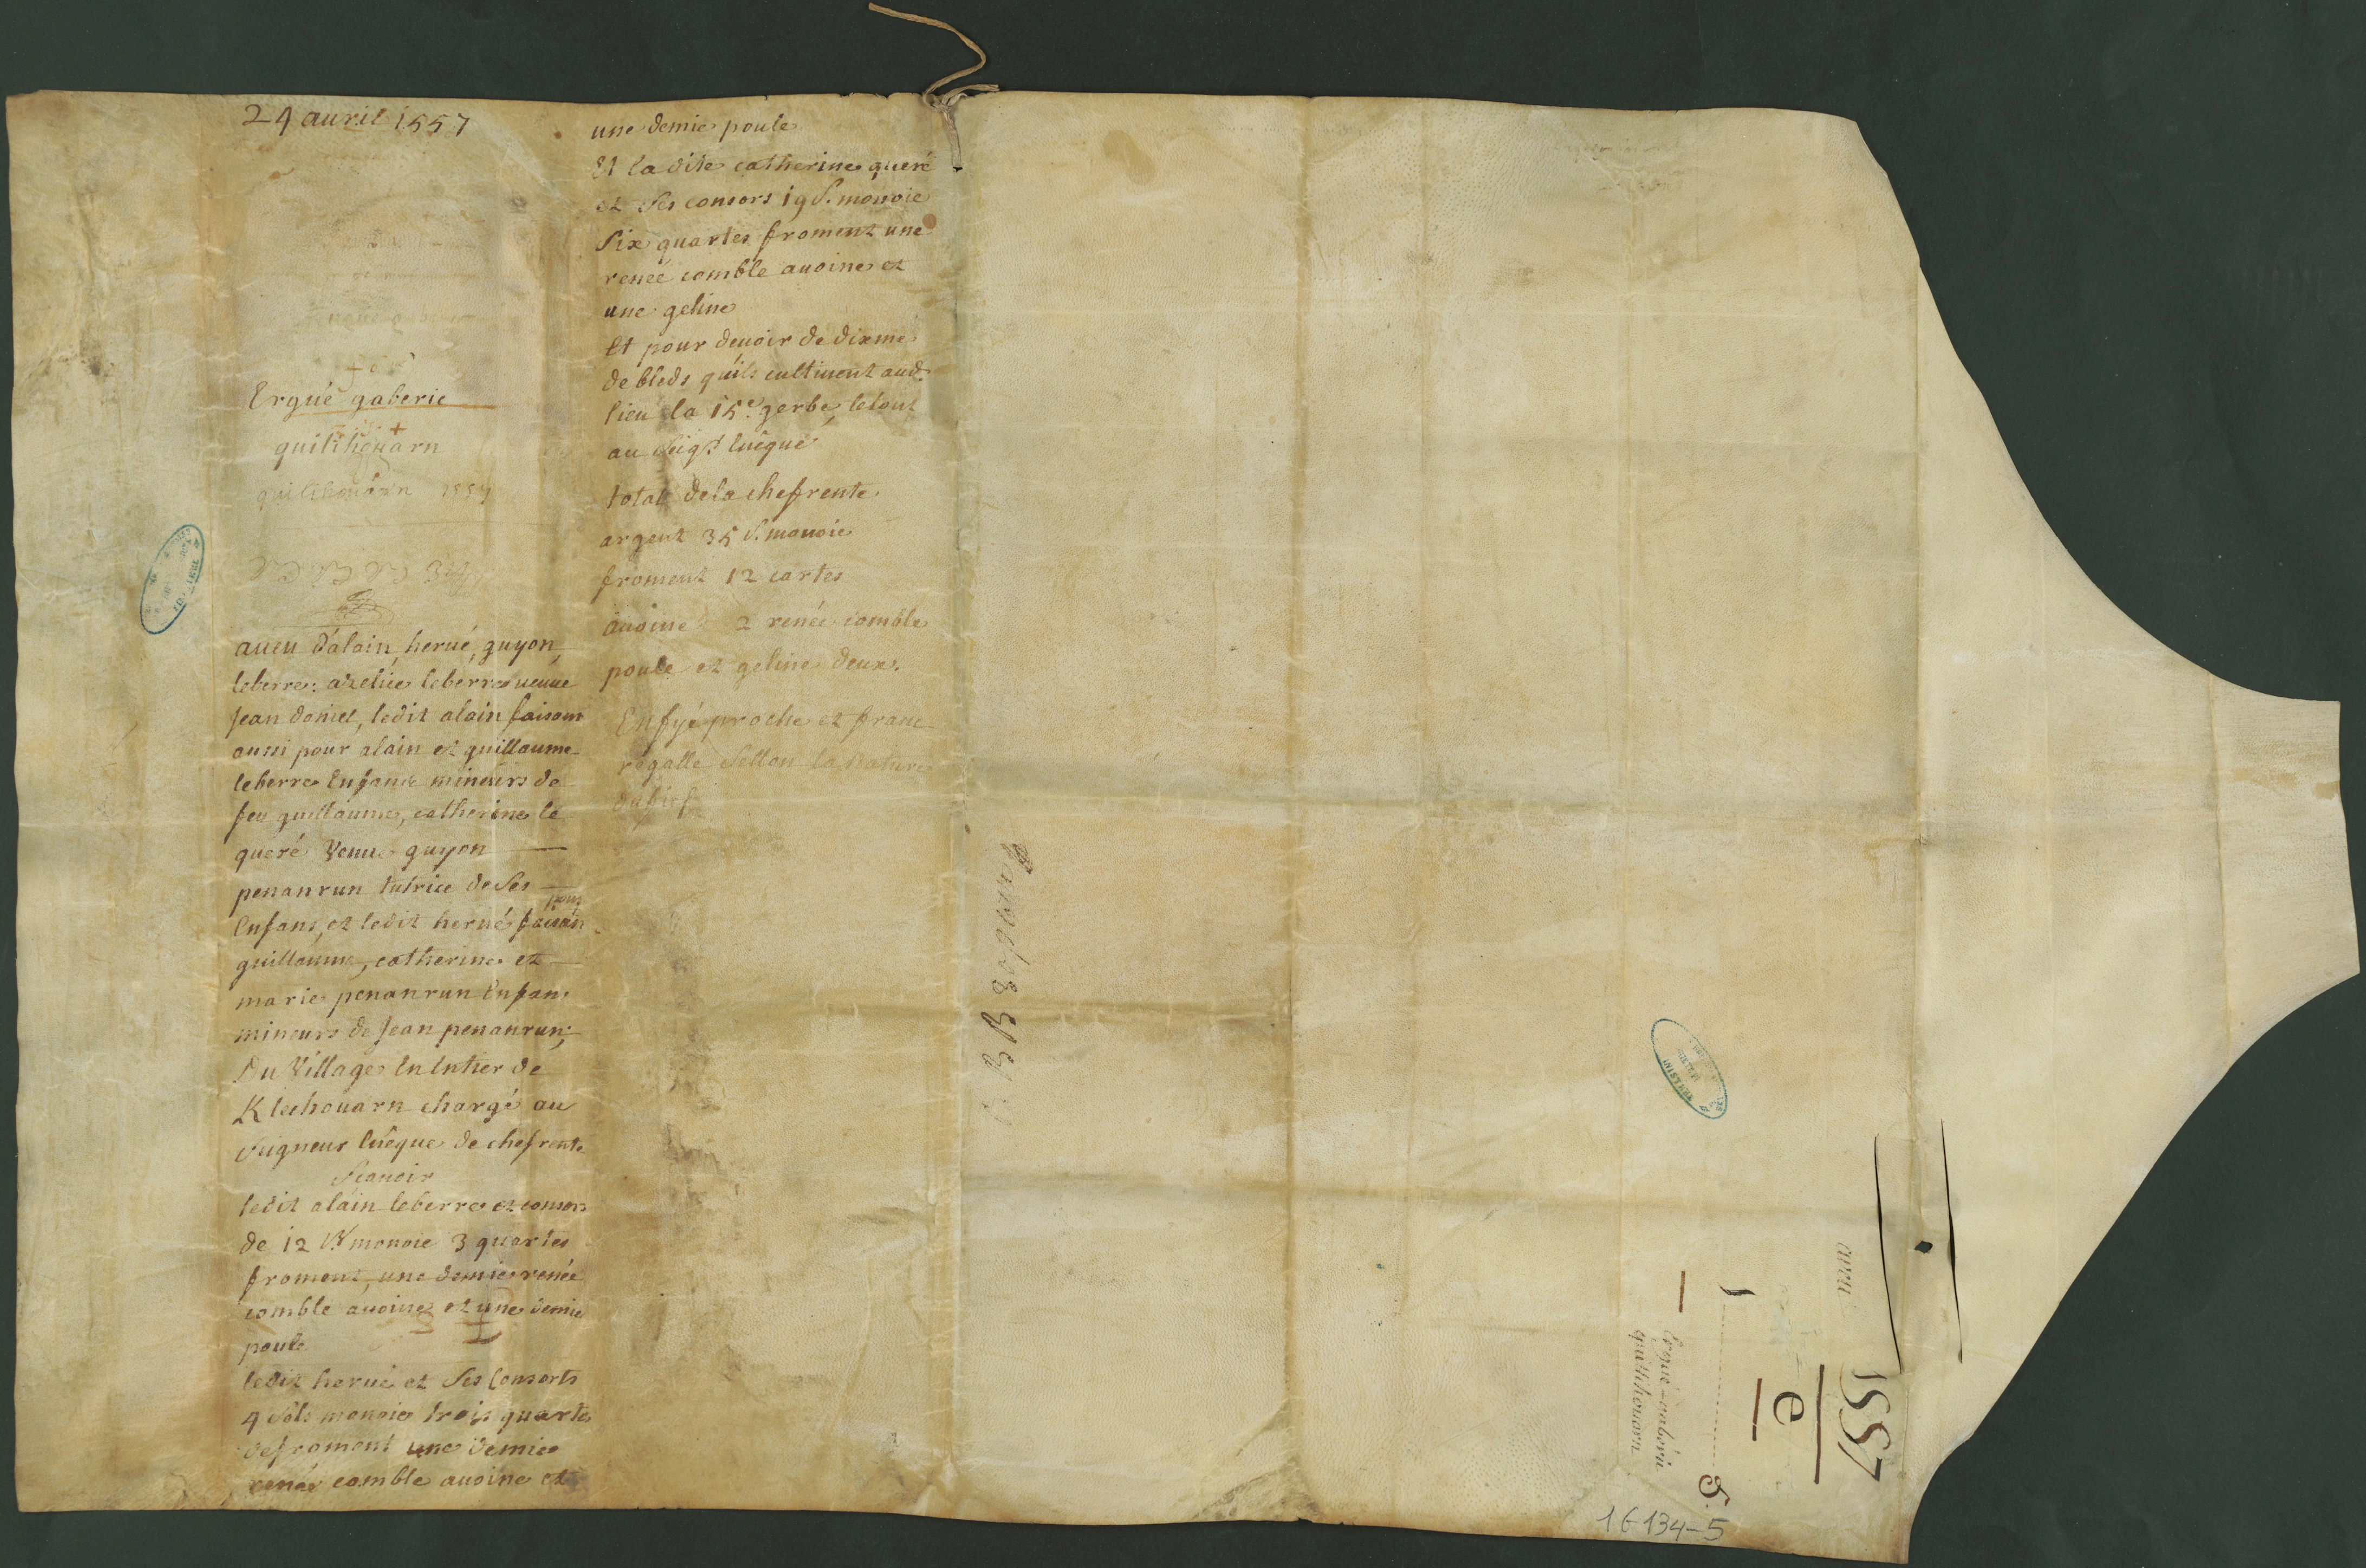 24 auril 1557
Ergué gaberic
quilihouarn
quilihouarn 1557
aueu d'alain, herué, guyon,
leberre: azelice leberre ueuue
Jean doniel, ledit alain faisant
aussi pour alain et guillaume
leberre Enfans mineurs de
feu guillaume, catherine le
queré Veuue guyon
penanrun tutrice de Ses
Enfans, et ledit herué faisan pour
guillaume, catherine et
marie penanrun Enfans
mineurs de Jean penanrun;
Du Village En Entier de
K lechouarn chargé au
Seigneur Euêque de chefrente
Scauoir
ledit alain leberre et consors
de 12 s. monoie 3 quartes
froment, une demie renée
comble auoine et une demie
poule
ledit herué et Ses Consorts
4 Sols monoie trois quarte
de froment une demie
renée comble auoine et
une demie poule
Et la dite catherine queré
et Ses consors 19 S. monoie
Six quartes froment une
renée comble auoine et
une geline
Et pour deuoir de dixme
de bleds qu'ils cultiuent aud.
lieu la 15e. gerbe, le tout
au Seigr. Euêque
total de la chefrente
argent 35 S. monoie
froment 12 cartes
auoine 2 renée comble
poule et geline deux.
En fyé proche et franc
régalle Sellon la nature
du fief
aueu
1557
e
1 S.
Ergué-gaberic
quilihouarn
1G134-5